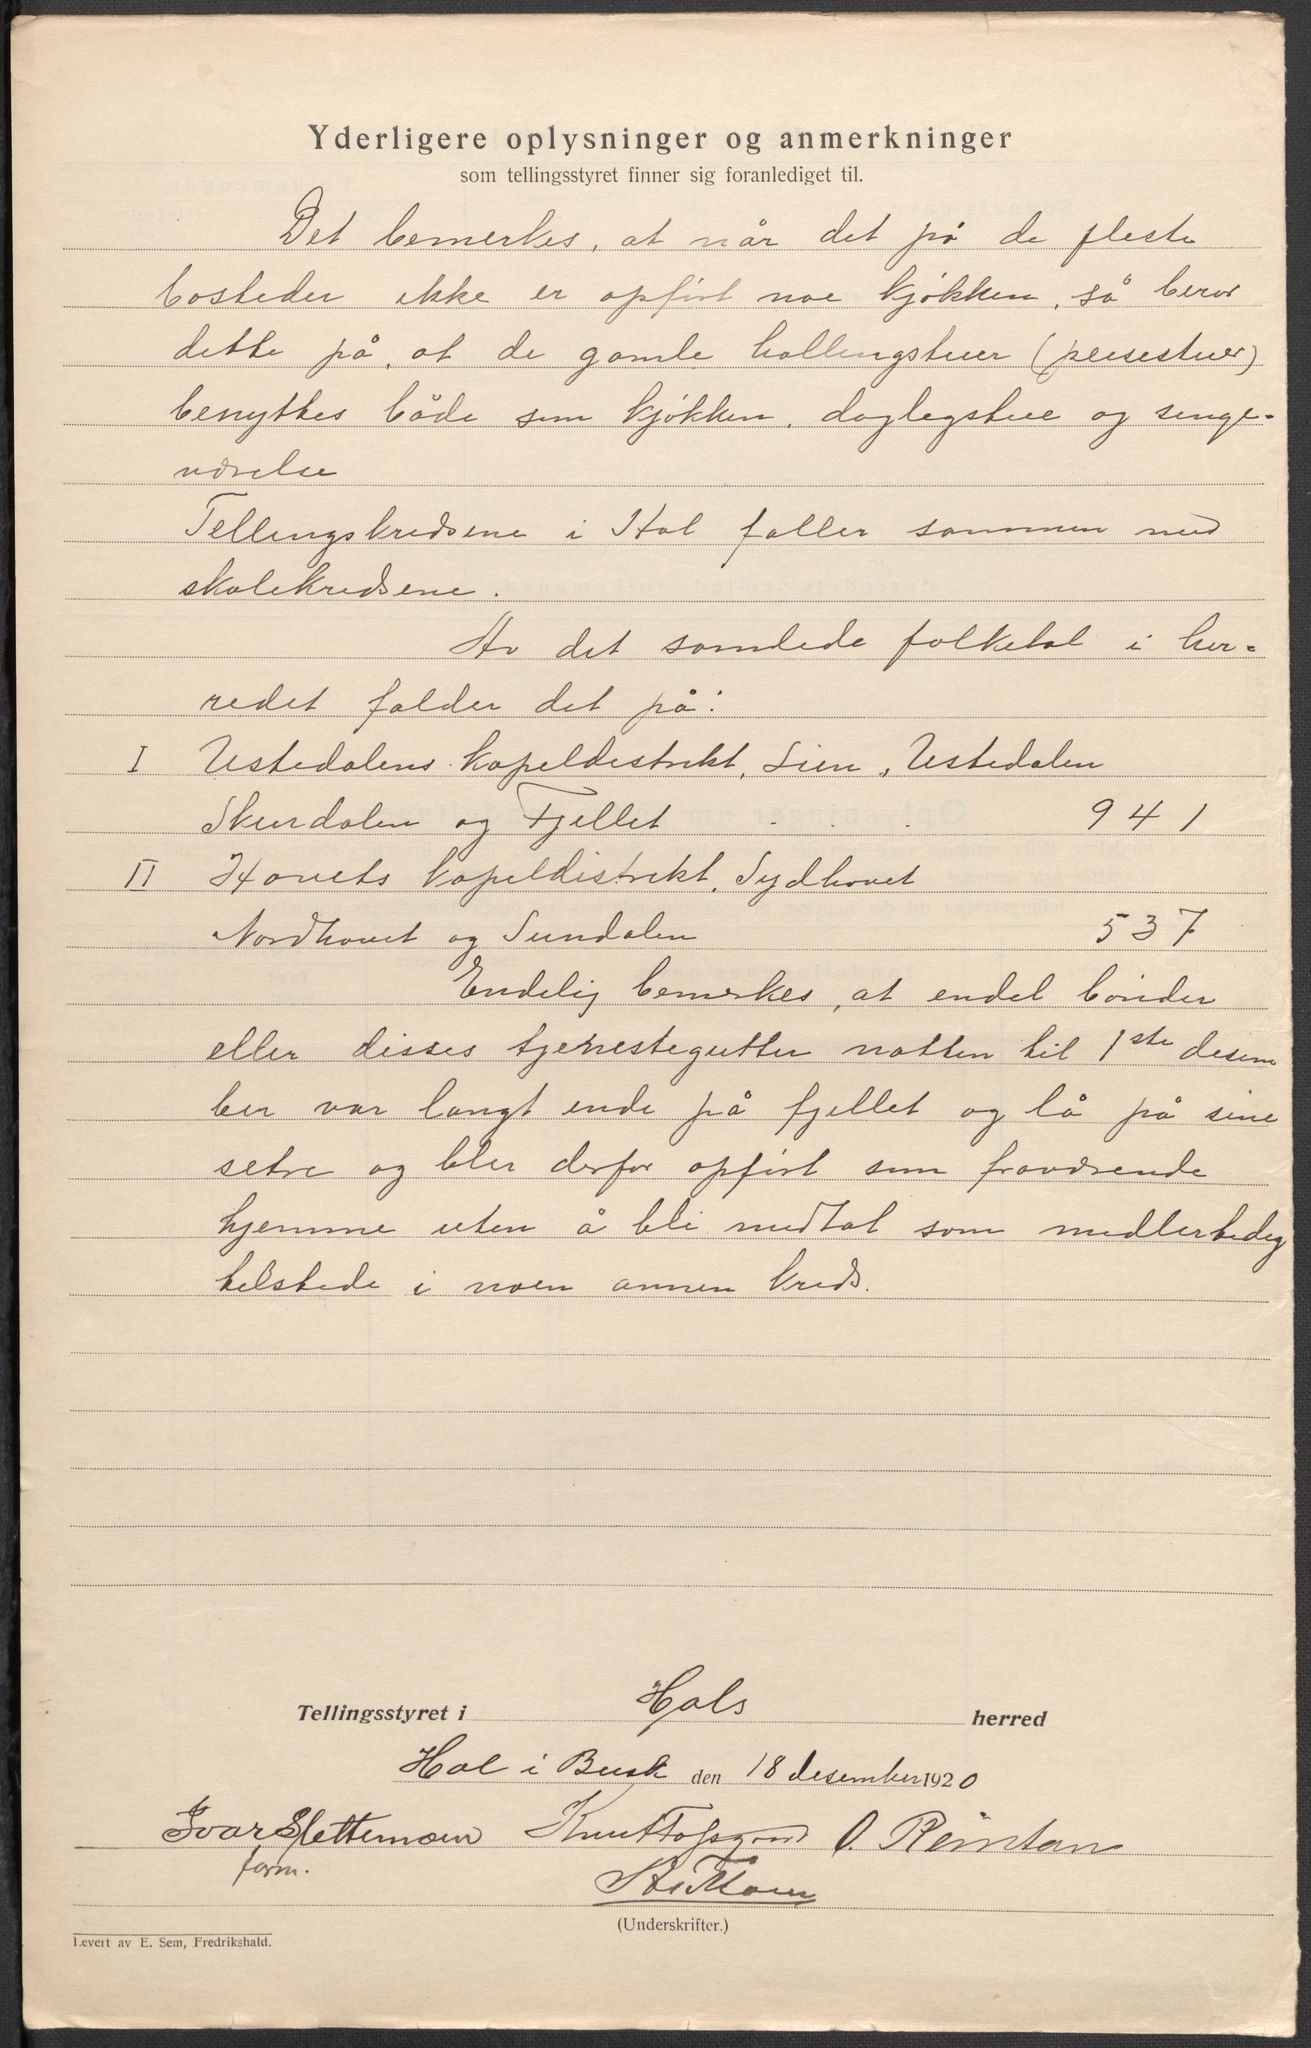 Yderligere oplysninger og anmerkninger
som tellingsstyret finner sig foranlediget til.
Det bemerkes, at når det på de fleste
bosteder ikke er opført noe kjøkken, så beror
dette på, at de gamle hallingstuer (peisestuer)
benyttes både som kjøkken, daglegstue og senge-
værelse
Tellingskredsene i Hol faller sammen med
skolekredsene.
Av det samlede folketal i her-
redet falder det på:
I Ustedalens kapeldistrikt, Lien, Ustedalen
Skurdalen og Fjellet . . . 941
II Hovets kapeldistrikt, Sydhovet
Nordhovet og Sundalen 537
Endelig bemerkes, at endel bønder
eller disses tjenestegutter natten til 1ste desem
ber var langt inde på fjellet og lå på sine
setre og blev derfor opført som fraværende
hjemme uten å bli medtat som midlertidig
tilstede i noen annen kreds.
Tellingsstyret i Hols herred
Hol i Busk den 18 desember 1920
Ivar Slettemoen Knut O. Reintan
form.
(Underskrifter.)
Levert av E. Sem, Fredrikshald.